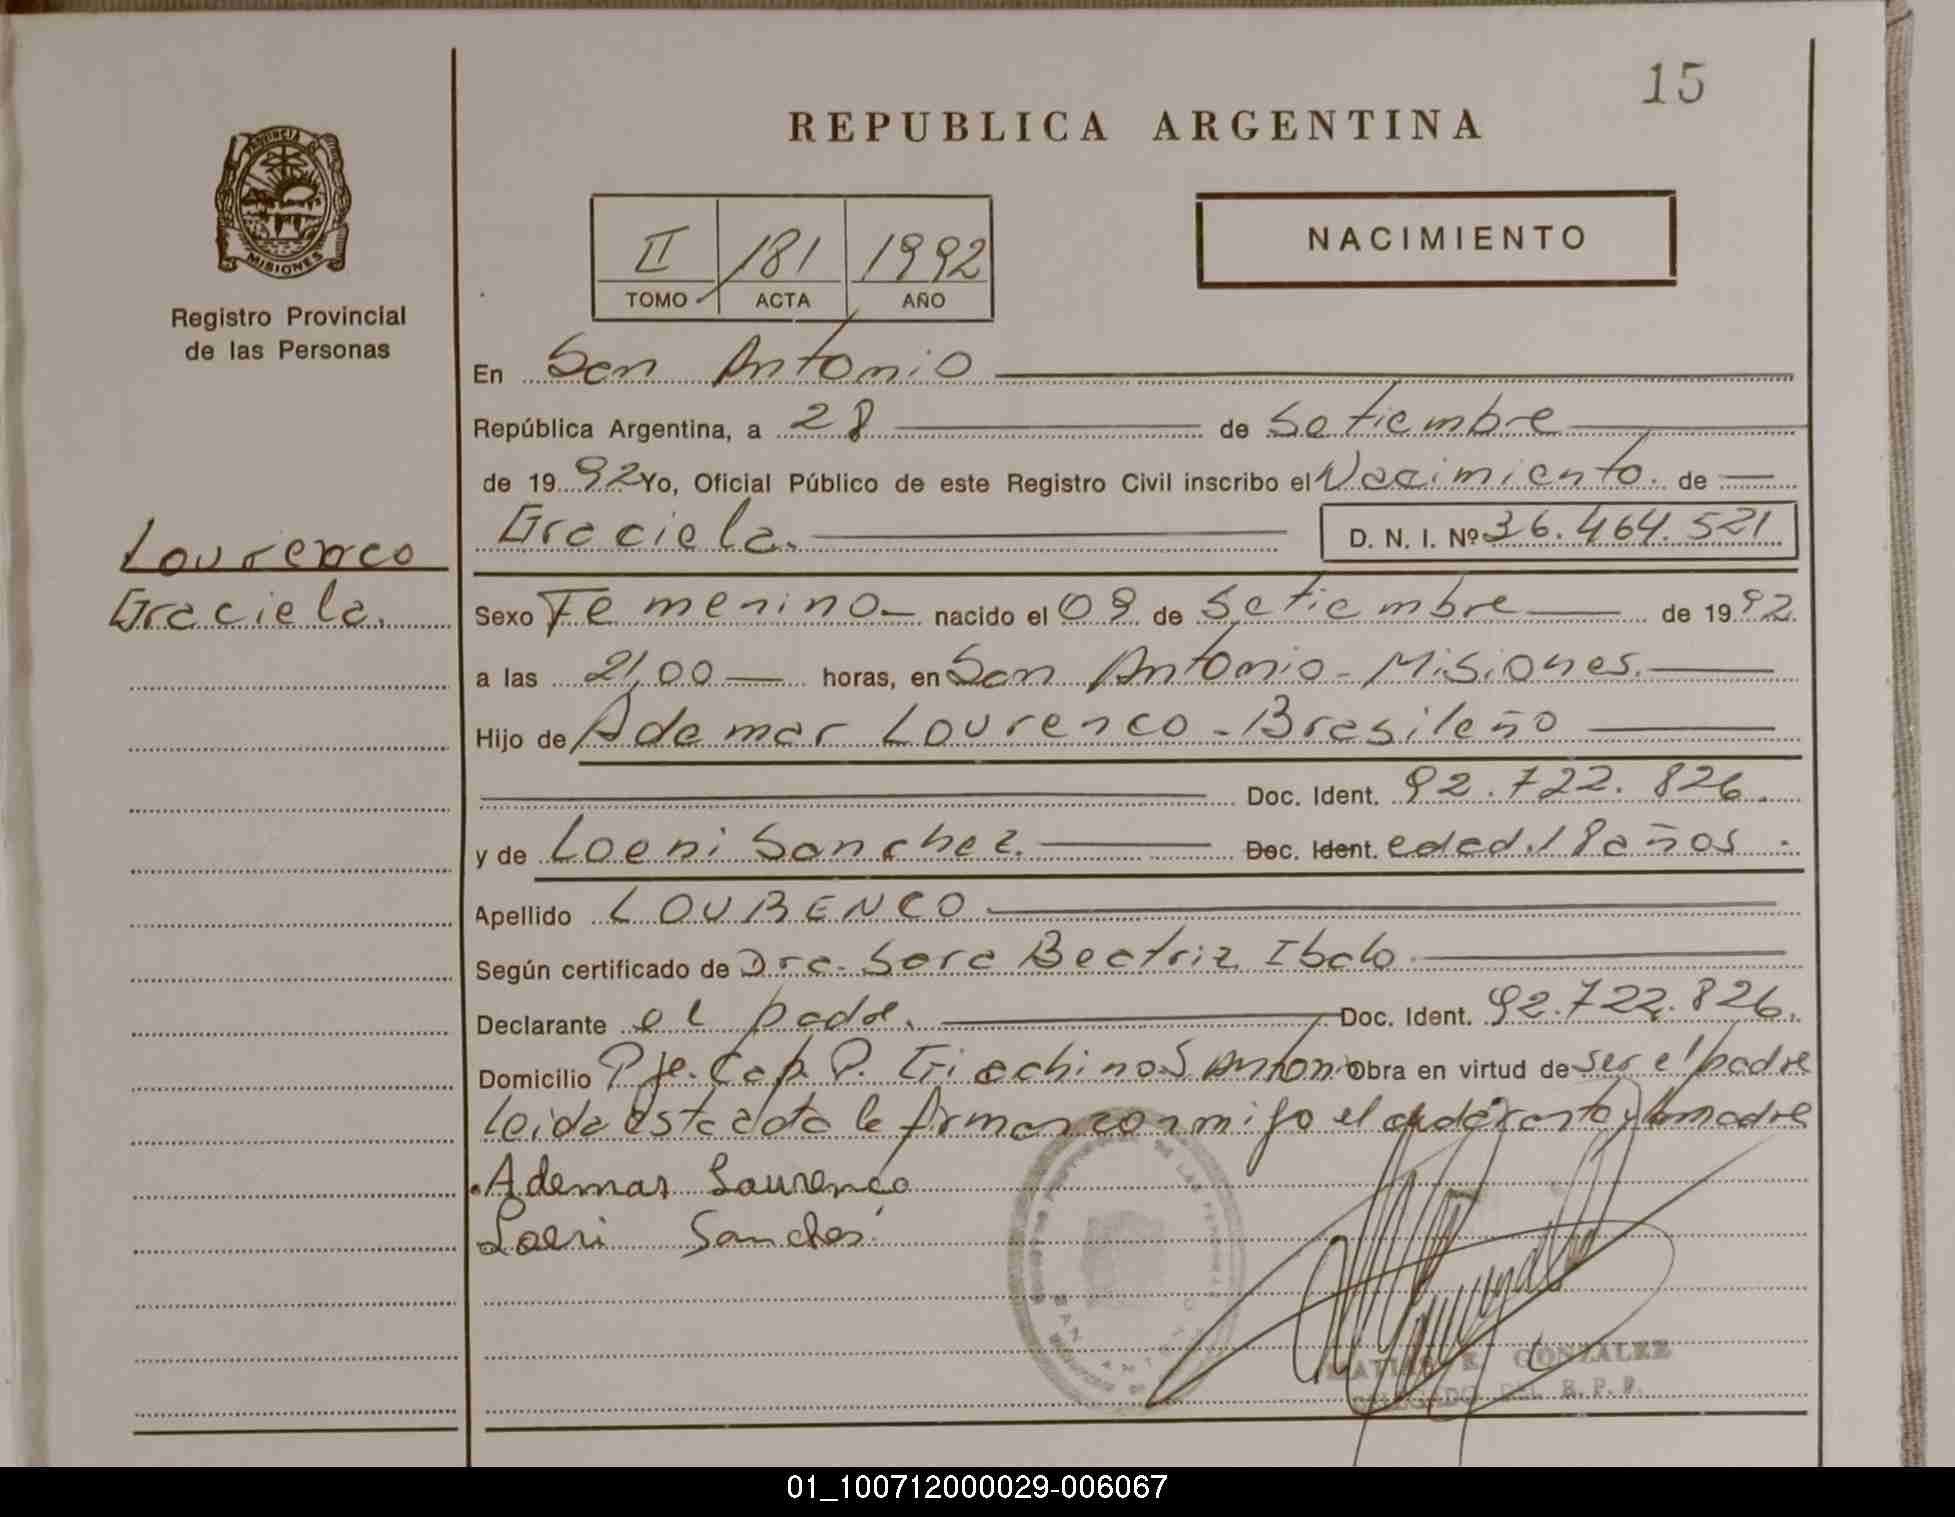 15
REPUBLICA ARGENTINA
PROVINCIA DE
MISIONES
Registro Provincial
de las Personas
II 181 1992
TOMO ACTA AÑO
NACIMIENTO
En San Antonio
República Argentina, a 28 de Setiembre
de 1992 Yo, Oficial Público de este Registro Civil inscribo el Nacimiento. de
Graciela. D. N. I. Nº 36.464.521
Lourenco
Graciela.
Sexo Femenino nacido el 09 de Setiembre de 1992
a las 21,00 horas, en San Antonio - Misiones.
Hijo de Ademar Lourenco - Brasileño
Doc. Ident. 92.722.826.
y de Loeni Sanchez. Doc. Ident. edad. 18 años.
Apellido LOURENCO
Según certificado de Dra. Sara Beatriz Ibalo.
Declarante el padre. Doc. Ident. 92.722.826.
Domicilio Pje. Cap. P. S Antonio Obra en virtud de ser el padre
leida esta acta la firman conmigo el y la madre
Ademar Lourenco
Loeni Sanches
SAN ANTONIO
MISIONES
MATIAS E. GONZALEZ
DELEGADO DEL R. P. P.
01_100712000029-006067